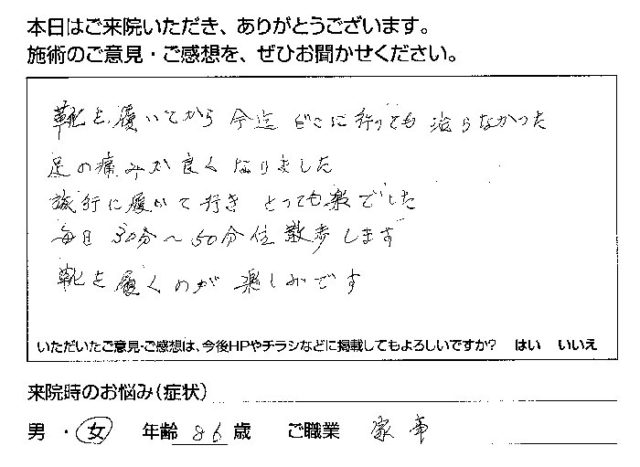 本日はご来院いただき、ありがとうございます。
施術のご意見・ご感想を、ぜひお聞かせください。
靴を履いてから今迄どこに行っても治らなかった
足の痛みが良くなりました
旅行に履いて行きとっても楽でした
毎日30分〜50分位散歩します
靴を履くのが楽しみです
いただいたご意見・ご感想は、今後HPやチラシなどに掲載してもよろしいですか？ はい いいえ
来院時のお悩み（症状）
男・女 年齢 86 歳 ご職業 家事